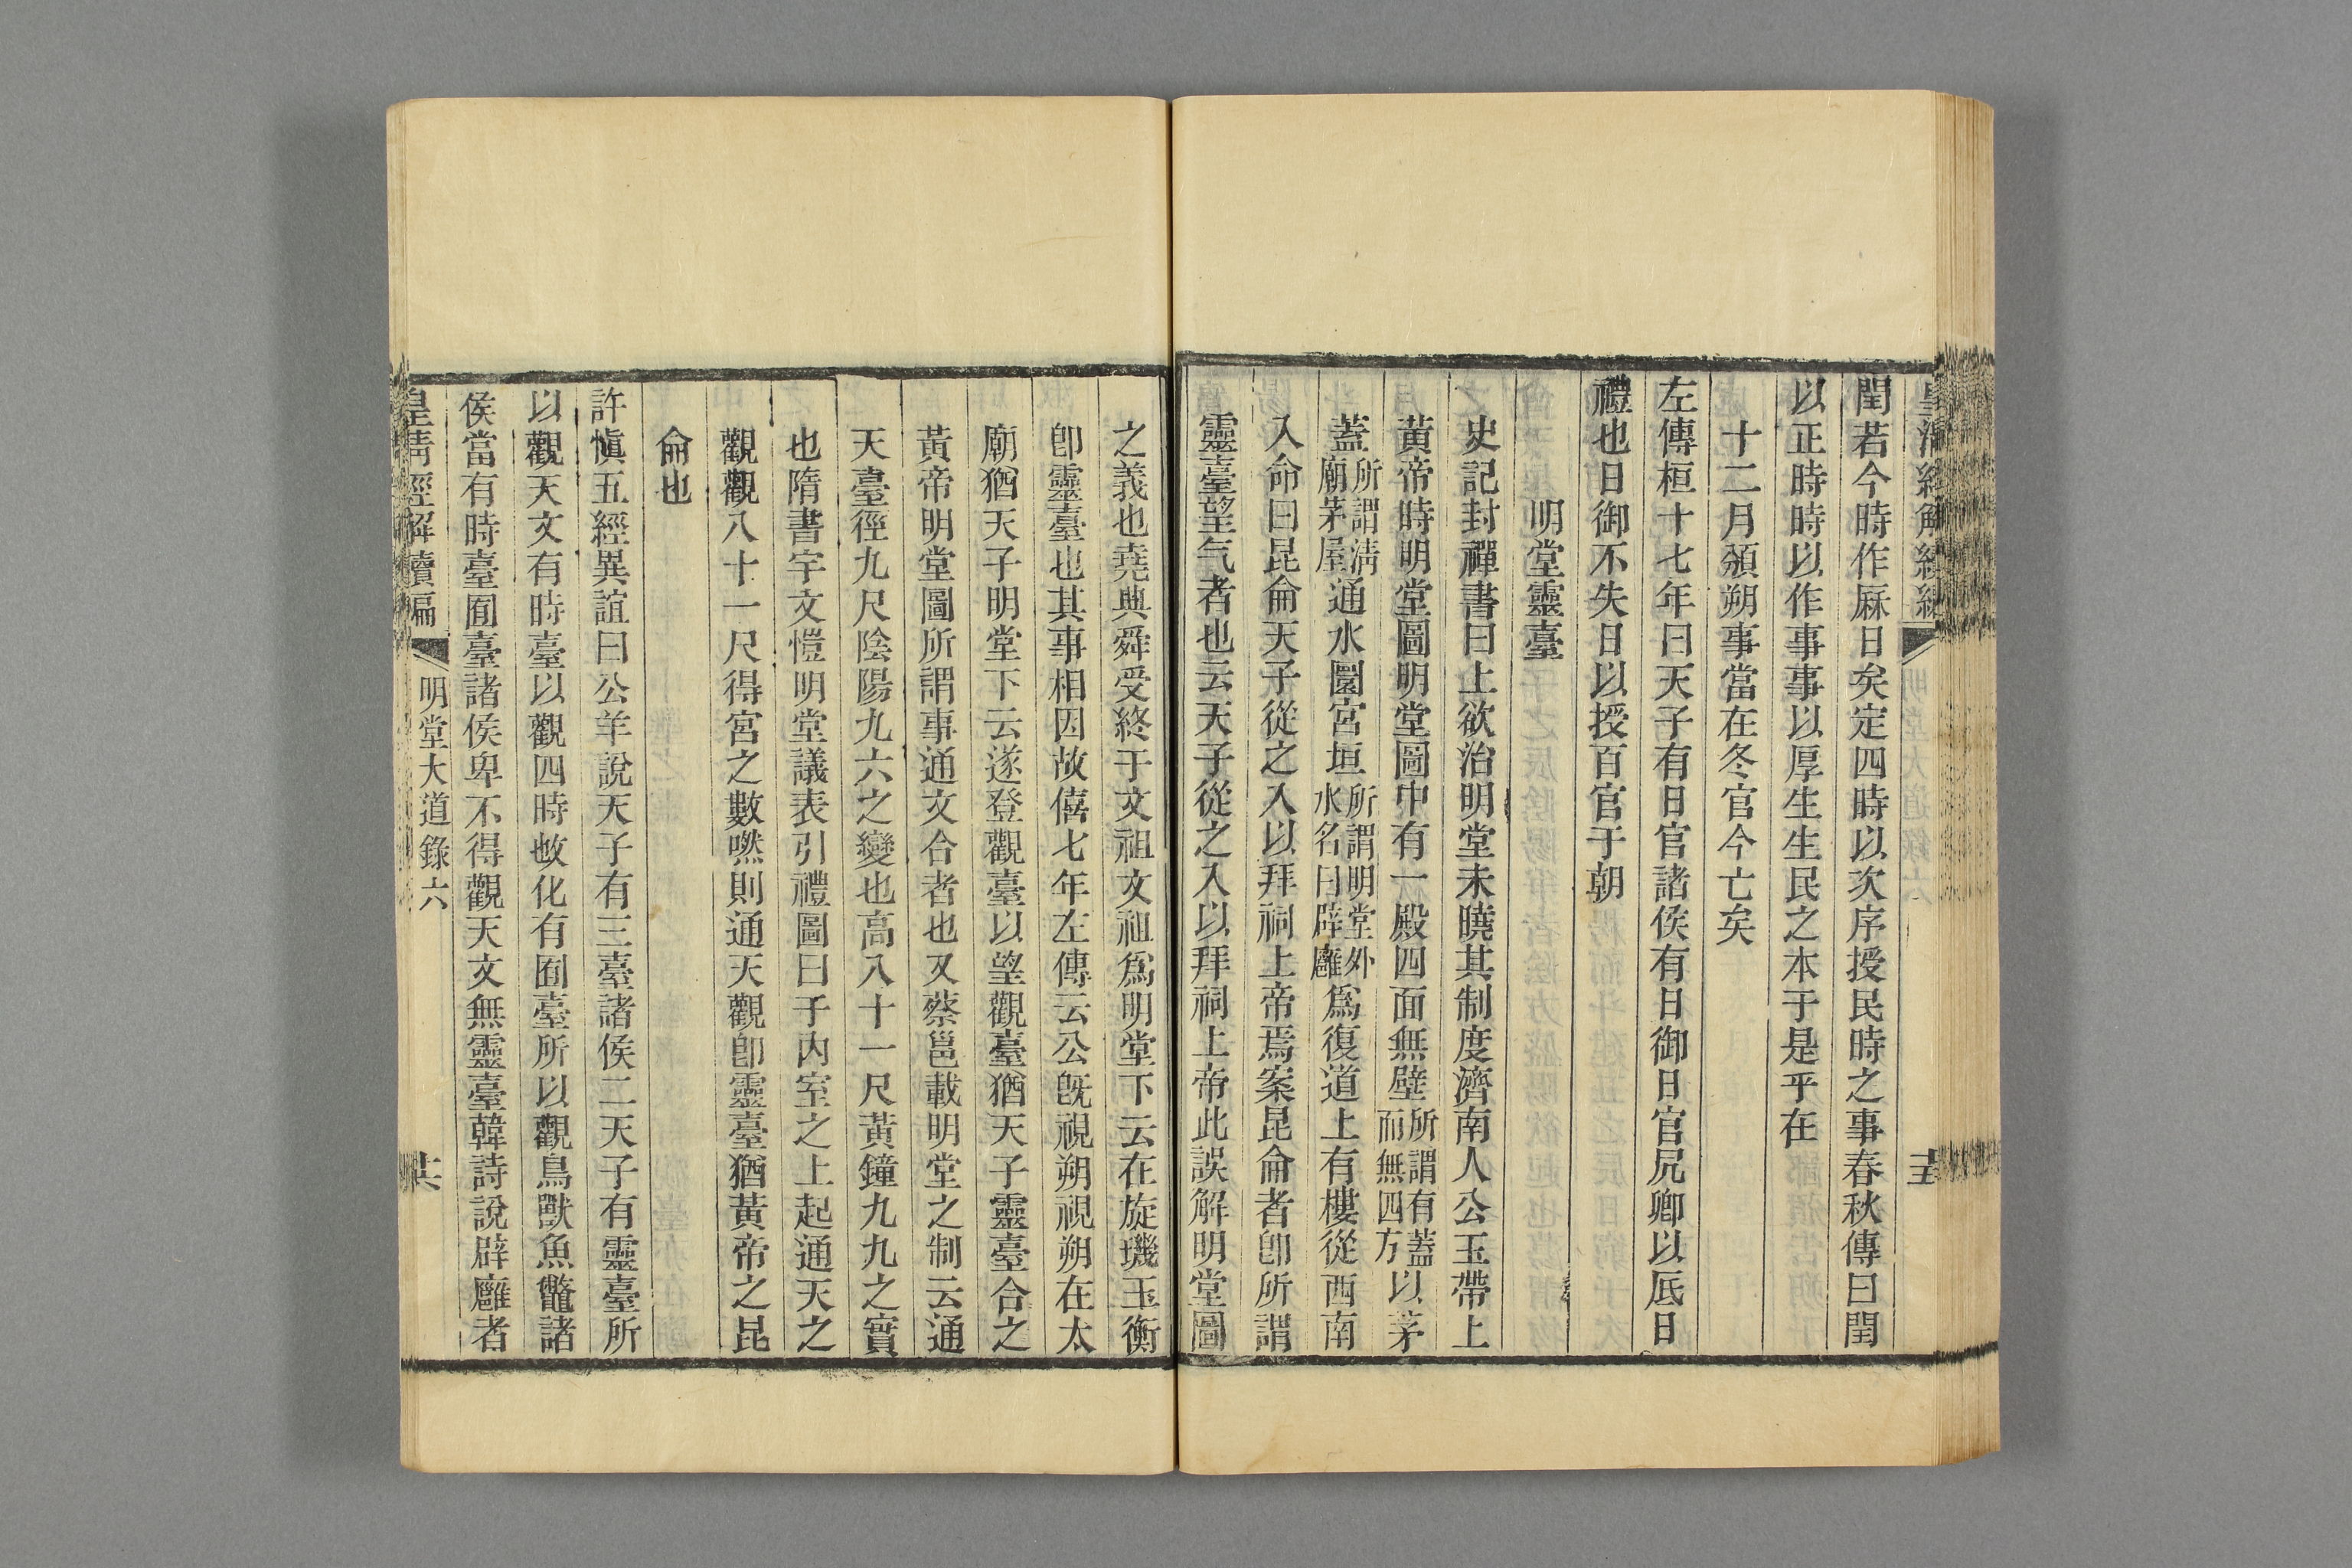 閏若今時作厤日矣定四時以次序授民時之事春秋傳曰閏
以正時時以作事事以厚生生民之本于是乎在
十二月頒朔事當在冬官今亡矣
左傳桓十七年曰天子有日官諸侯有日御日官凥卿以厎日
禮也日御不失日以授百官于朝
明堂靈臺
史記封禪書曰上欲治明堂未曉其制度濟南人公玉帶上
黃帝時明堂圖明堂圖中有一殿四面無壁所謂有蓋而無四方以茅
蓋所謂淸廟茅屋通水圜宮垣所謂明堂外水名曰辟廱爲復道上有樓從西南
入命曰昆侖天子從之入以拜祠上帝焉案昆侖者卽所謂
靈臺望气者也云天子從之入以拜祠上帝此誤解明堂圖
之義也堯典舜受終于文祖文祖爲明堂下云在旋璣玉衡
卽靈臺也其事相因故僖七年左傳云公旣視朔視朔在太
廟猶天子明堂下云遂登觀臺以望觀臺猶天子靈臺合之
黃帝明堂圖所謂事通文合者也又蔡邕載明堂之制云通
天臺徑九尺陰陽九六之變也高八十一尺黃鐘九九之實
也隋書宇文愷明堂議表引禮圖曰于內室之上起通天之
觀觀八十一尺得宮之數嘫則通天觀卽靈臺猶黃帝之昆
侖也
許愼五經異誼曰公羊說天子有三臺諸侯二天子有靈臺所
以觀天文有時臺以觀四時攺化有囿臺所以觀鳥獸魚鼈諸
侯當有時臺囿臺諸侯卑不得觀天文無靈臺韓詩說辟廱者
皇淸經解續編 明堂大道錄六 十六